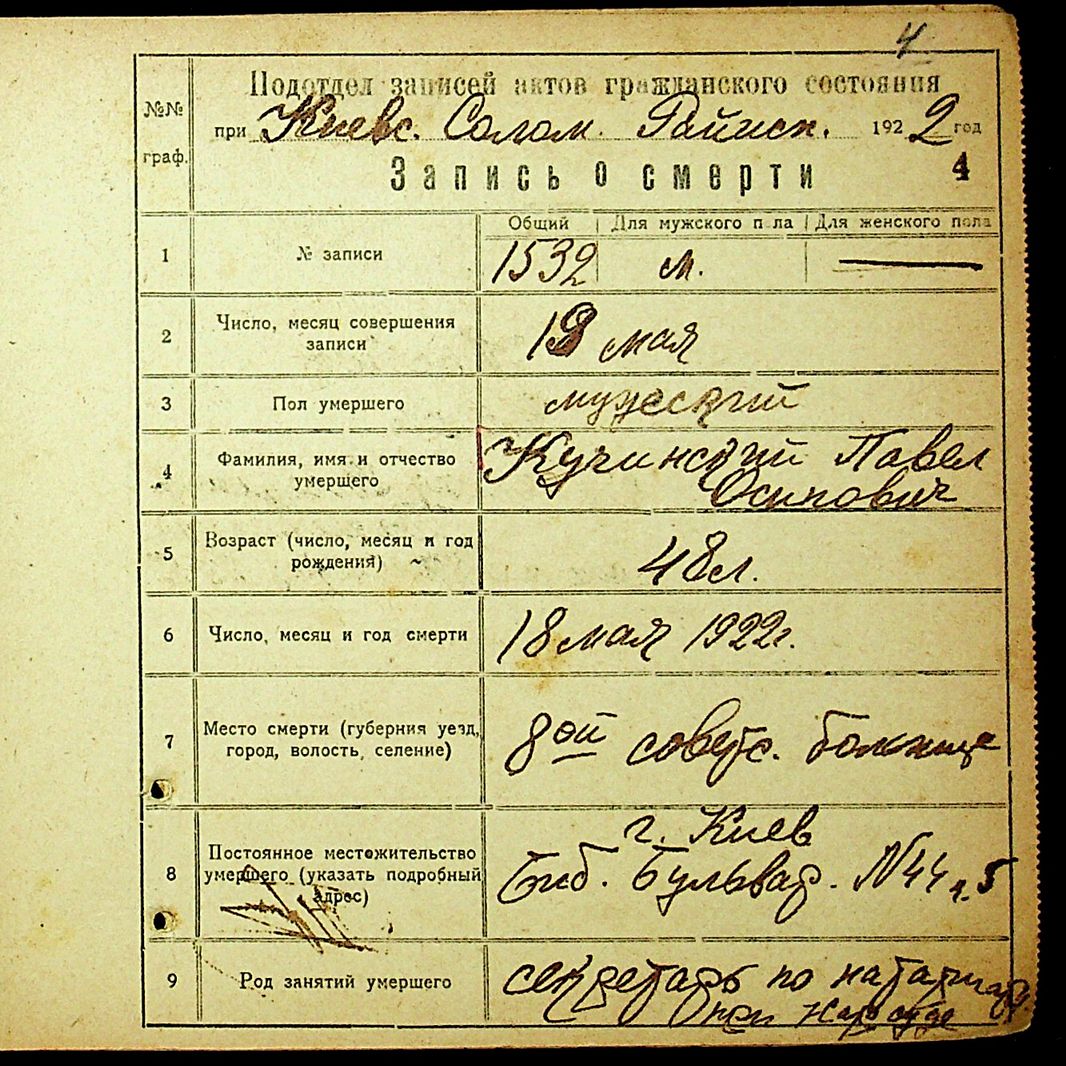 4
Подотдел записей актов гражданского состояния
№№ граф.
при Киевс. Солом. Райисп. 1922 год
Запись о смерти 4
Общий Для мужского пола Для женского пола
1 № записи 1532 м. —
2 Число, месяц совершения записи 19 мая
3 Пол умершего мужеский
4 Фамилия, имя и отчество умершего Кучинский Павел
Осипович
5 Возраст (число, месяц и год рождения) 48 л.
6 Число, месяц и год смерти 18 мая 1922 г.
7 Место смерти (губерния уезд, город, волость, селение) 8ой советс. больнице
8 Постоянное местожительство умершего (указать подробный адрес) г. Киев
Биб. Бульвар. №44 5
9 Род занятий умершего секретарь по
при Нарсуде